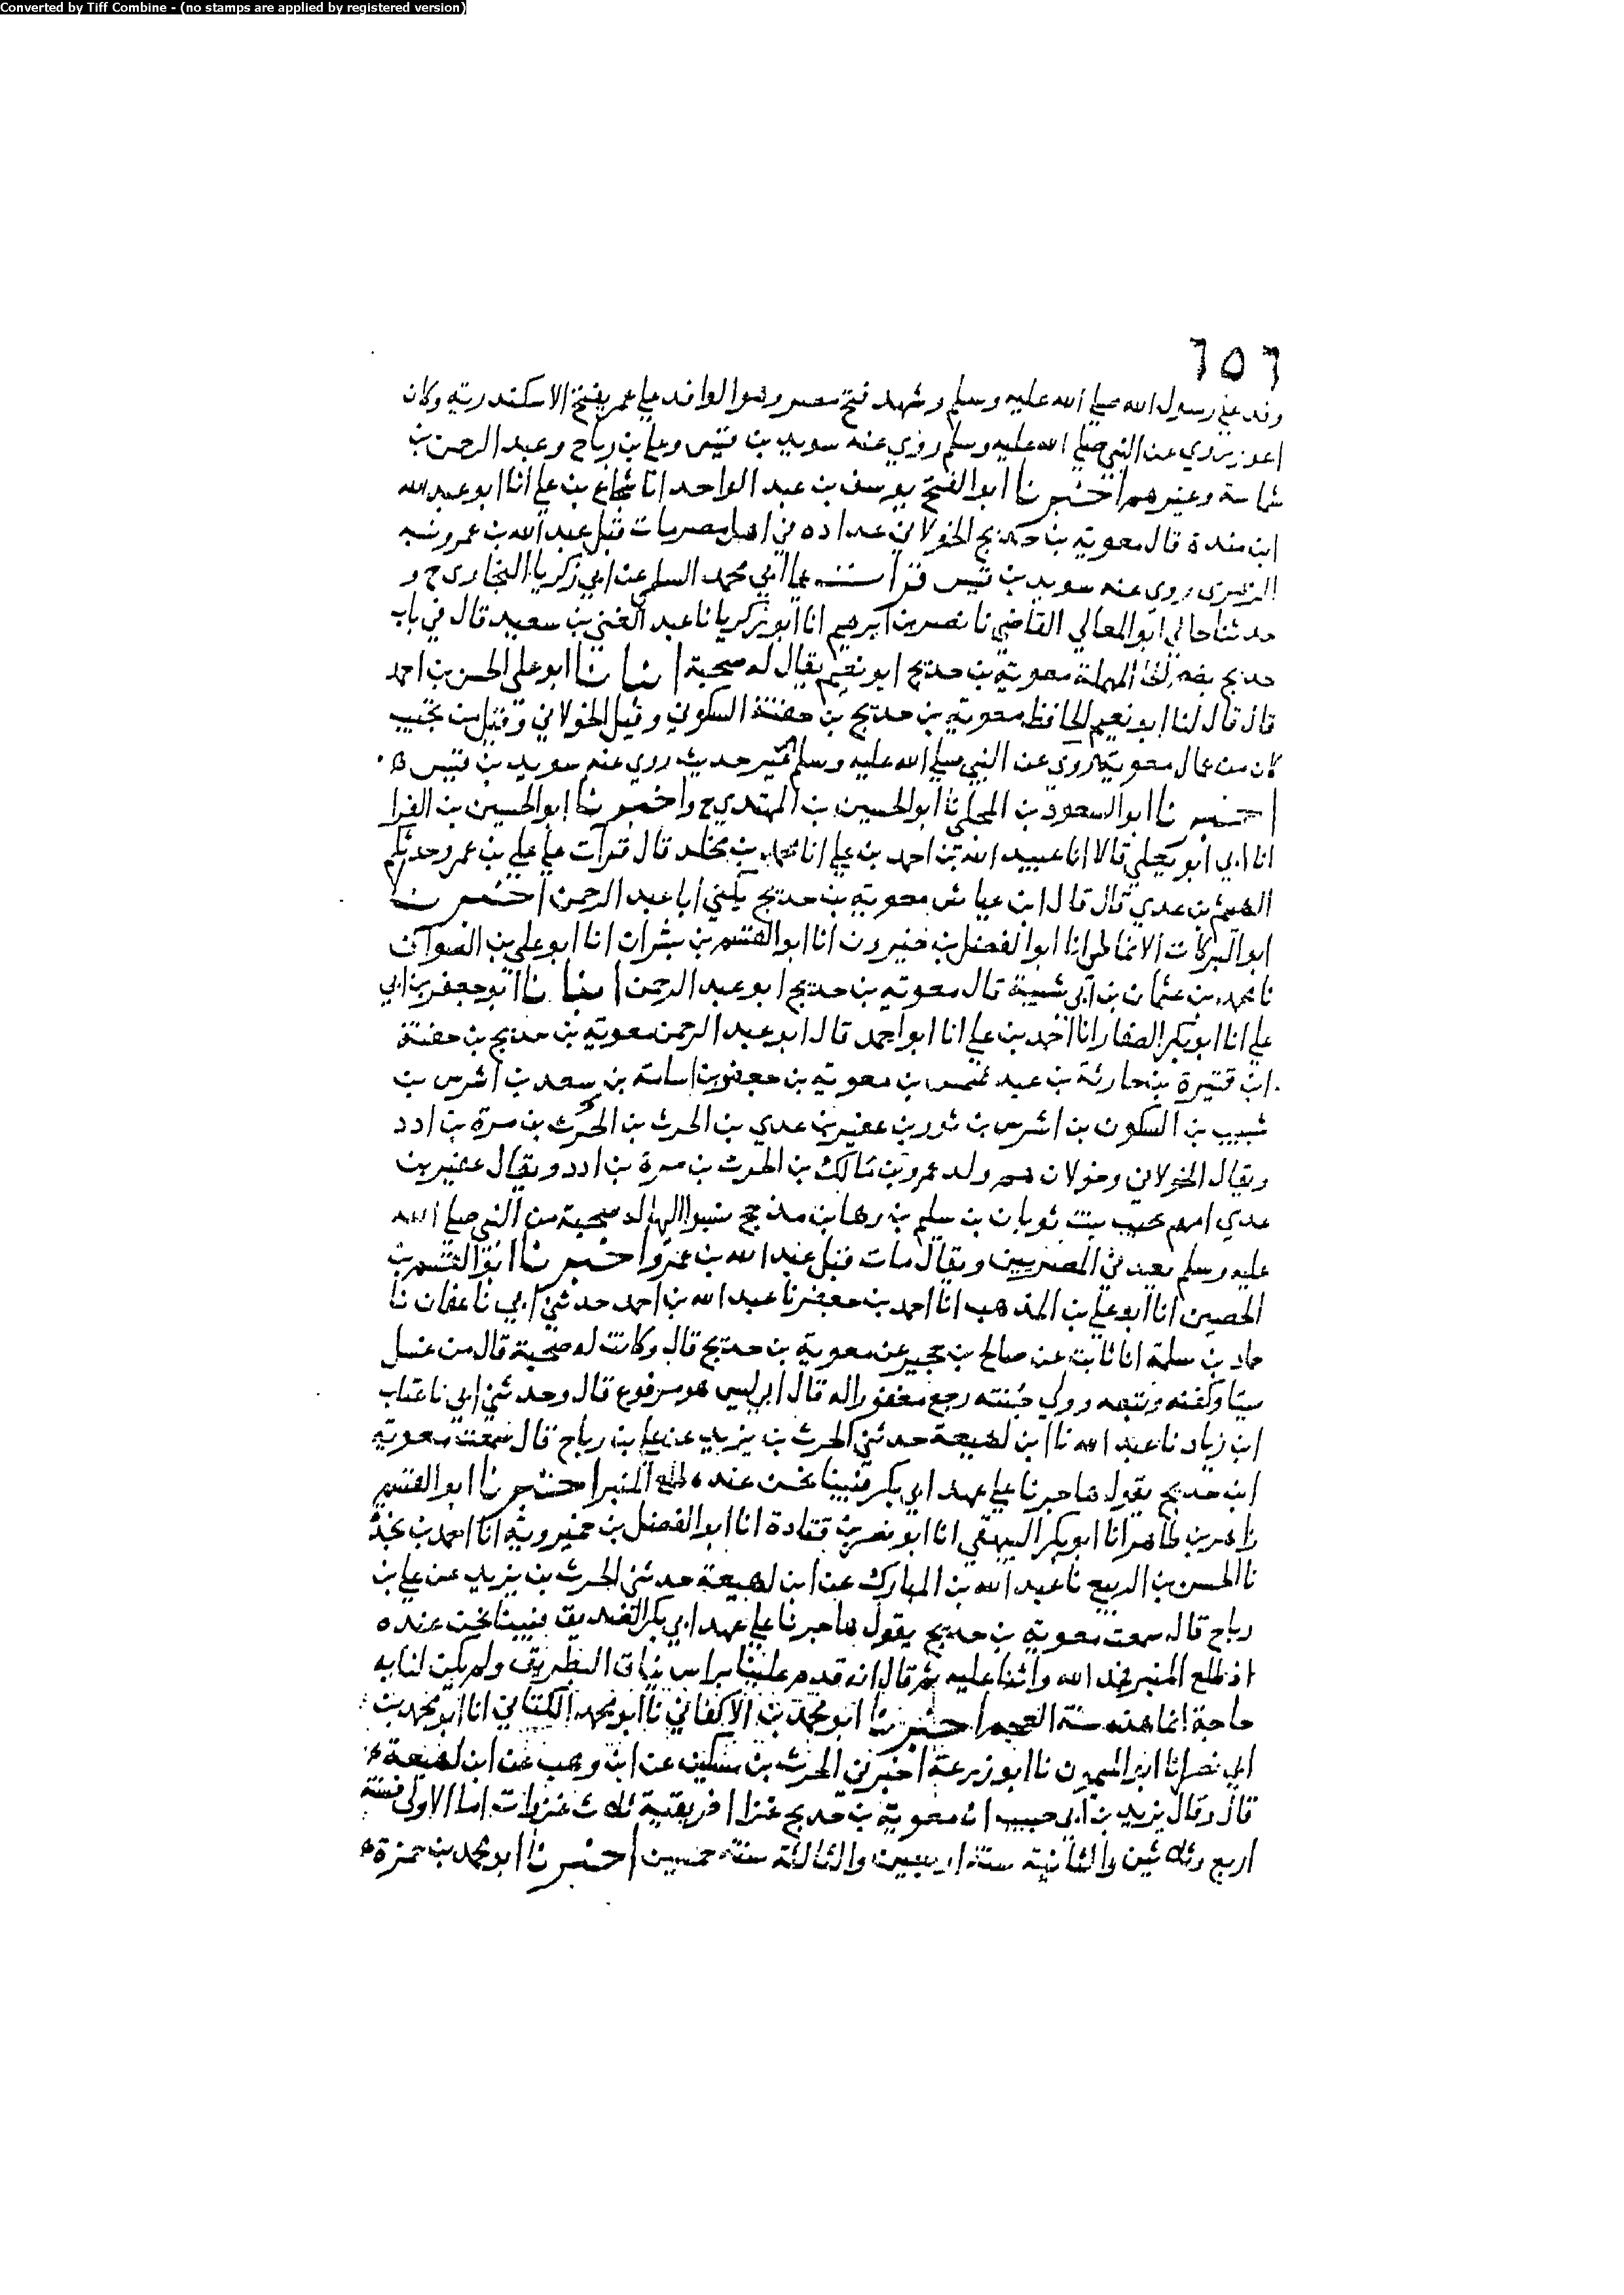 Converted by Tiff Combine - (no stamps are applied by registered version)
٦٥٦
وفد على رسول الله صلى الله عليه وسلم وشهد فتح مصر وهو الوافد على عمر بفتح الاسكندرية وكان
اعور يروي عن النبي صلى الله عليه وسلم روي عنه سويد بن قيس وعلي بن رباح وعبد الرحمن بن
شماسة وغيرهم اخبرنا ابو الفتح يوسف بن عبد الواحد انا شجاع بن علي انا ابو عبد الله
ابن مندة قال معوية بن حديج الخولاني عداده في اهل مصر مات قبل عبد الله بن عمر ونسبه
الزهرى روي عنه سويد بن قيس قرات على ابي محمد السلمي عن ابي زكريا البخاري ح و
حدثنا خالي ابو المعالي القاضي نا نصر بن ابرهيم انا ابو زكريا نا عبد الغني بن سعيد قال في باب
حديج بضم الحاء المهملة معوية بن حديج ابو نعيم يقال له صحبة انبانا ابو علي الحسن بن احمد
قال قال لنا ابو نعيم الحافظ معوية بن حديج بن جفنة السكوني وقيل الخولاني وقيل من تجيب
كان من عمال معوية روى عن النبي صلى الله عليه وسلم غير حديث روي عنه سويد بن قيس ه
اخبرنا ابو السعود بن المجلي نا ابو الحسين بن المهتدي ح واخبرنا ابو الحسين بن الفرا
انا ابي ابو يعلي قالا انا عبيد الله بن احمد بن علي انا محمد بن مخلد قال قرات على علي بن عمرو حدثكم
الهيثم بن عدي قال قال ابن عياش معوية بن حديج يكنى ابا عبد الرحمن اخبرنا
ابو البركات الانماطي انا ابو الفضل بن خيرون انا ابو القسم بن بشران انا ابو علي بن الصواف
نا محمد بن عثمان بن ابي شيبة قال معوية بن حديج ابو عبد الرحمن انبانا ابو جعفر بن ابي
علي انا ابو بكر الصفار انا احمد بن علي انا ابو احمد قال ابو عبد الرحمن معوية بن حديج بن جفنة
ابن قتيرة بن حارثة بن عبد شمس بن معوية بن جعفر بن اسامة بن سعد بن اشرس بن
شبيب بن السكون بن اشرس بن ثور بن عفير بن عدي بن الحرث بن الحرث بن مرة بن ادد
ويقال الخولاني وخولان هم ولد عمرو بن مالك بن الحرث بن مرة بن ادد ويقال عفير بن
عدي امهم تجيب بنت ثوبان بن سليم بن رها بن مذحج نسبوا اليها له صحبة من النبي صلى الله
عليه وسلم يعد في المصريين ويقال مات قبل عبد الله بن عمرو اخبرنا ابو القسم بن
الحصين انا ابو علي بن المذهب انا احمد بن جعفر نا عبد الله بن احمد حدثني ابي نا عفان نا
حماد بن سلمة انا ثابت عن صالح بن حجير عن معوية بن حديج قال وكانت له صحبة قال من غسل
ميتا وكفنه وتبعه وولي جنته رجع مغفورا له قال ابي ليس هو مرفوع قال وحدثني ابي نا عتاب
ابن زياد نا عبد الله نا ابن لهيعة حدثني الحرث بن يزيد عن علي بن رباح قال سمعت معوية
ابن حديج يقول هاجرنا على عهد ابي بكر فبينا نحن عنده طلع المنبر اخبرنا ابو القسم
زاهر بن طاهر انا ابو بكر البيهقي انا ابو نصر بن قتادة انا ابو الفضل بن خميرويه انا احمد بن نجدة
نا الحسن بن الربيع نا عبد الله بن المبارك عن ابن لهيعة حدثني الحرث بن يزيد عن علي بن
رباح قال سمعت معوية بن حديج يقول هاجرنا على عهد ابي بكر الصديق فبينا نحن عنده
اذ طلع المنبر فحمد الله واثنا عليه ثم قال انه قدم علينا براس يناق البطريق ولم يكن لنا به
حاجة انما هذه سنة العجم اخبرنا ابو محمد بن الاكفاني نا ابو محمد الكتاني انا ابو محمد بن
ابي نصر انا ابو الميمون نا ابو زرعة اخبرني الحرث بن مسكين عن ابن وهب عن ابن لهيعة
قال وقال يزيد بن ابي حبيب ان معوية بن حديج غزا افريقية ثلاث غزوات اما الاولى فسنة
اربع وثلاثين والثانية سنة اربعين والثالثة سنة خمسين اخبرنا ابو محمد بن حمزة